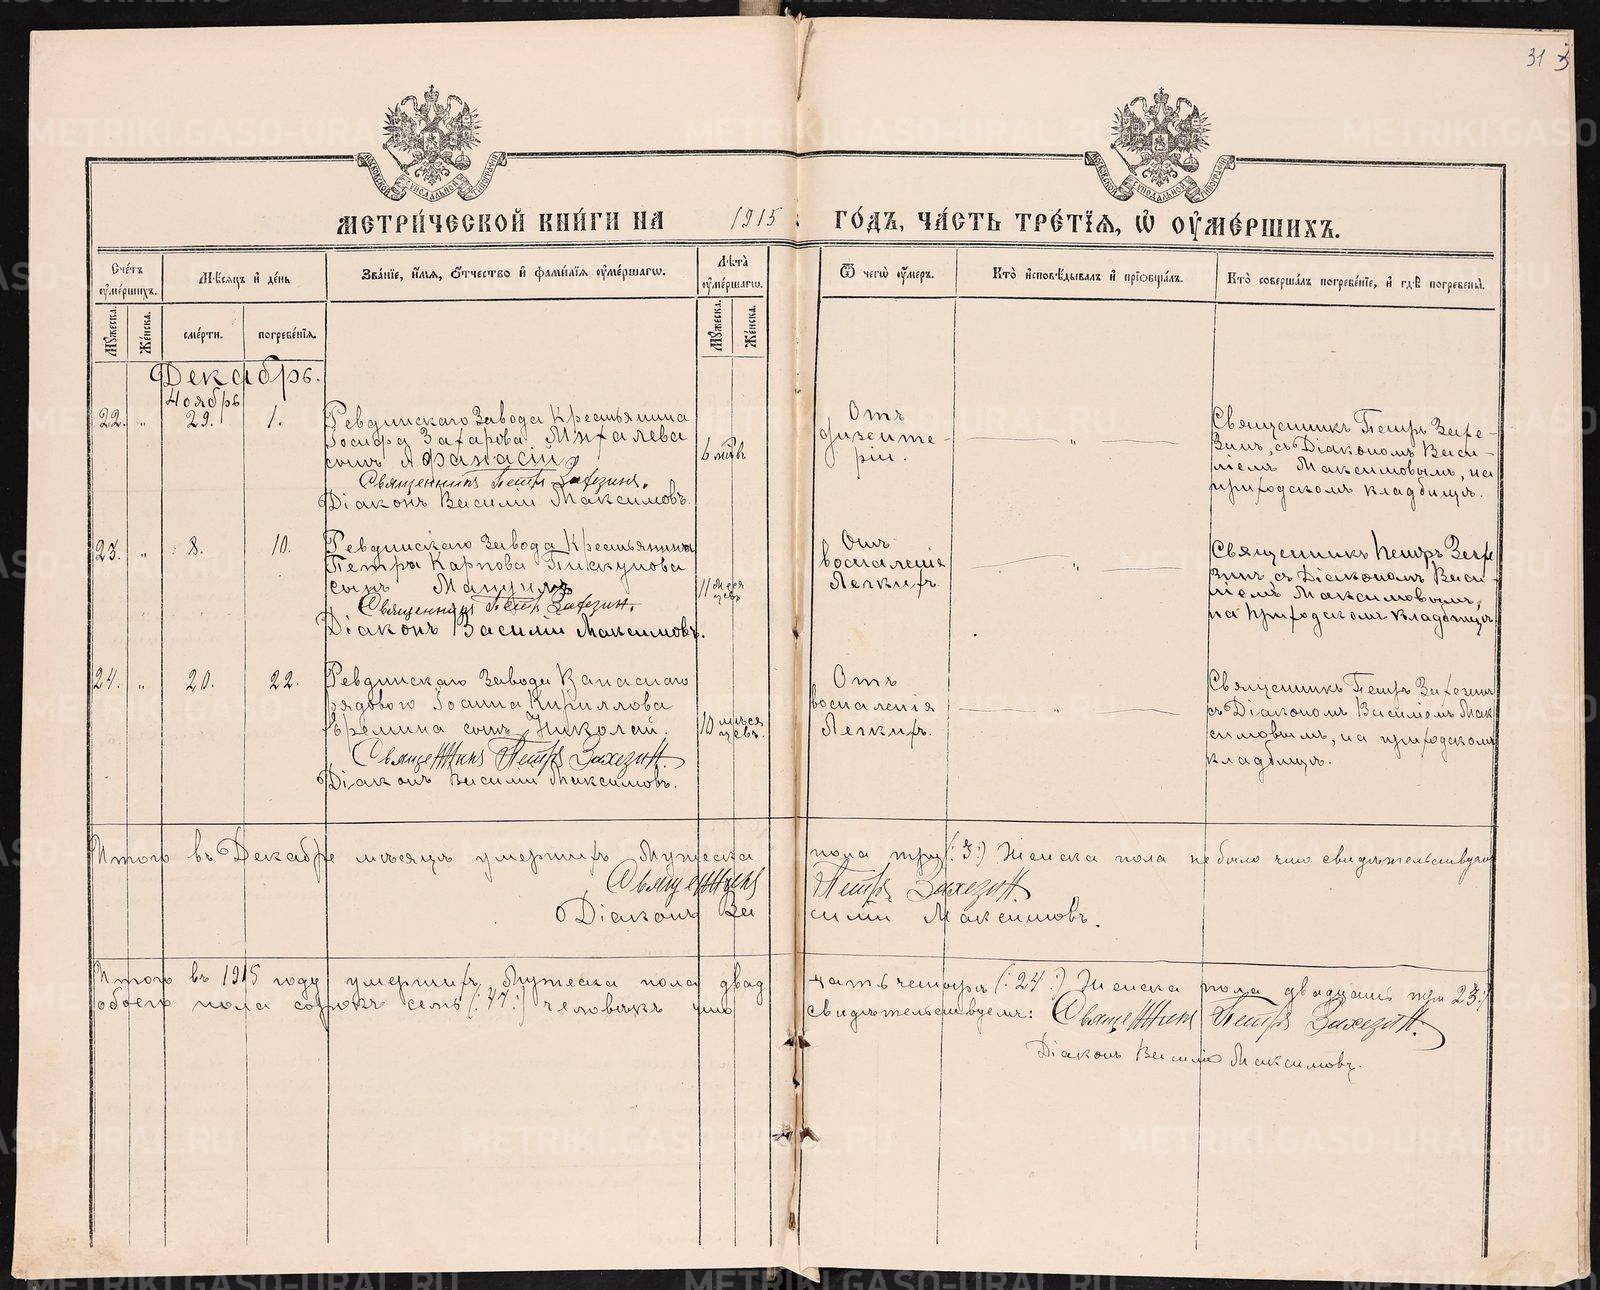 31
МЕТРИ́ЧЕСКОЙ КНИ́ГИ НА 1915 ГО́ДЪ, ЧА́СТЬ ТРЕ́ТІѦ, Ѽ ОУ҆МЕ́РШИХЪ.
Сче́тъ оу҆ме́ршихъ.
Мѣ́сѧцъ и҆ де́нь
Зва́нїе, и҆́мѧ, ѻ҆́тчество и҆ фами́лїѧ оу҆ме́ршагѡ.
Лѣ́та оу҆ме́ршагѡ.
Ѿ чегѡ̀ оу҆́меръ.
Кто̀ и҆сповѣ́дывалъ и҆ прїѡбща́лъ.
Кто̀ соверша́лъ погребе́нїе, и҆ гдѣ̀ погребены̀.
Мꙋ́жеска.
Же́нска.
сме́рти.
погребе́нїѧ.
Мꙋ́жеска.
Же́нска.
Декабрь.
Ноябрь
22. „ 29. 1.
Ревдинскаго Завода Крестьянина
Іосифа Захарова Мягалева
сынъ Афанасій
Священникъ Петръ Захезинъ.
Діаконъ Василій Максимовъ.
6 мѣсв
Отъ
дизенте-
ріи.
„
Священникъ Петръ Захе-
зинъ, съ Діакономъ Васи-
ліемъ Максимовымъ, на
приходскомъ кладбищѣ.
23. „ 8. 10.
Ревдинскаго Завода Крестьянина
Петра Карпова Пиккунова
сынъ
Священникъ Петръ Захезинъ.
Діаконъ Василій Максимовъ.
11 меся
цевъ
Отъ
воспаленія
Легкихъ
„
Священникъ Петръ Захе
зинъ, съ Діакономъ Васи-
ліемъ Максимовымъ,
на приходскомъ кладбищѣ
24. „ 20. 22.
Ревдинскаго Завода Запаснаго
рядового Іоанна Кириллова
Еремина сынъ Николай.
Священникъ Петръ Захезинъ.
Діаконъ Василій Максимовъ.
10 мѣся
цевъ.
Отъ
воспаленія
Легкихъ.
„
Священникъ Петръ Захезинъ
съ Діакономъ Василіемъ Мак
симовымъ, на приходскомъ
кладбищѣ.
Итого въ Декабре мѣсяцѣ умершихъ Мужеска пола три (:3:) Женска пола небыло что свидѣтельствуемъ
Священникъ Петръ Захезинъ.
Діаконъ Василій Максимовъ.
Итого въ 1915 году умершихъ Мужеска пола двадцать четыре (:24:) Женска пола двадцать три 23:)
обоего пола сорокъ семь (:47:) человѣкъ что свидѣтельствуемъ: Священникъ Петръ Захезинъ.
Діаконъ Василій Максимовъ.
METRIKI.GASO-URAL.RU